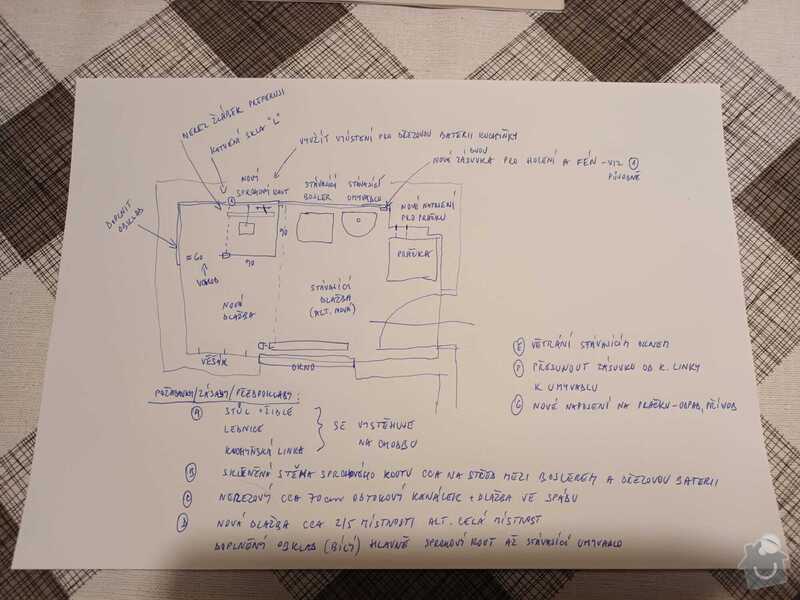 NEREZ ŽLÁBEK PREFERUJI
KOTVENÍ SKLA "L"
VYUŽÍT VYÚSTENÍ PRO DŘEZOVOU BATERII KUCHYŇKY
DVOU
NOVÁ ZÁSUVKA PRO HOLENÍ A FÉN - VIZ
PŮVODNĚ
DOPLNIT
OBKLAD
NOVÝ
SPRCHOVÝ KOUT
STÁVAJÍCÍ
BOILER
STÁVAJÍCÍ
UMYVADLO
NOVÉ NAPOJENÍ
PRO PRAČKU
PRAČKA
≈60
VCHOD
90
90
NOVÁ
DLAŽBA
STÁVAJÍCÍ
DLAŽBA
(ALT. NOVÁ)
VĚŠÁK
OKNO
POŽADAVKY/ZÁSADY/PŘEDPOKLADY:
A STŮL + ŽIDLE
LEDNICE
KUCHYŇSKÁ LINKA
SE VYSTĚHUJE
NA CHODBU
B SKLENĚNÁ STĚNA SPRCHOVÉHO KOUTU CCA NA STŘED MEZI BOJLEREM A DŘEZOVOU BATERII
C NEREZOVÝ CCA 70cm ODTOKOVÝ KANÁLEK + DLAŽBA VE SPÁDU
D NOVÁ DLAŽBA CCA 2/5 MÍSTNOSTI ALT. CELÁ MÍSTNOST
DOPLNĚNÍ OBKLAD (BÍLÝ) HLAVNĚ SPRCHOVÝ KOUT AŽ STÁVAJÍCÍ UMYVADLO
E VĚTRÁNÍ STÁVAJÍCÍM OKNEM
F PŘESUNOUT ZÁSUVKU OD K. LINKY
K UMYVADLU
G NOVÉ NAPOJENÍ NA PRAČKU - ODPAD, PŘÍVOD